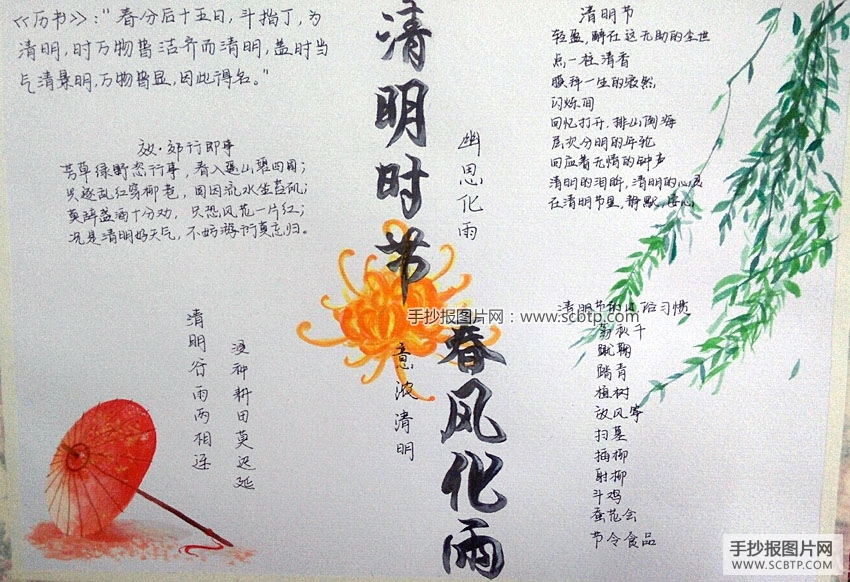 《历书》:"春分后十五日,斗指丁,为
清明,时万物皆洁齐而清明,盖时当
气清景明,万物皆显,因此得名。"
郊行即事
芳草绿野恣行事,春入遥山碧四围;
兴逐乱红穿柳巷,困因流水坐苔矶;
莫辞盏酒十分劝,只恐风花一片红;
况是清明好天气,不妨游衍莫忘归。
清明谷雨两相连
浸种耕田莫迟延
清明时节
幽思化雨
意浓清明
春风化雨
清明节
轻盈,醉在这无助的尘世
点一柱清香
膜拜一生的寂然
闪烁间
回忆打开,排山倒海
层次分明的年轮
回应着无情的钟声
清明的泪眸,清明的心灵
在清明节里,静默
清明节的 习惯
荡秋千
蹴鞠
踏青
植树
放风筝
扫墓
插柳
射柳
斗鸡
蚕花会
节令食品
手抄报图片网:www.scbtp.com
手抄报图片网
WWW.SCBTP.COM